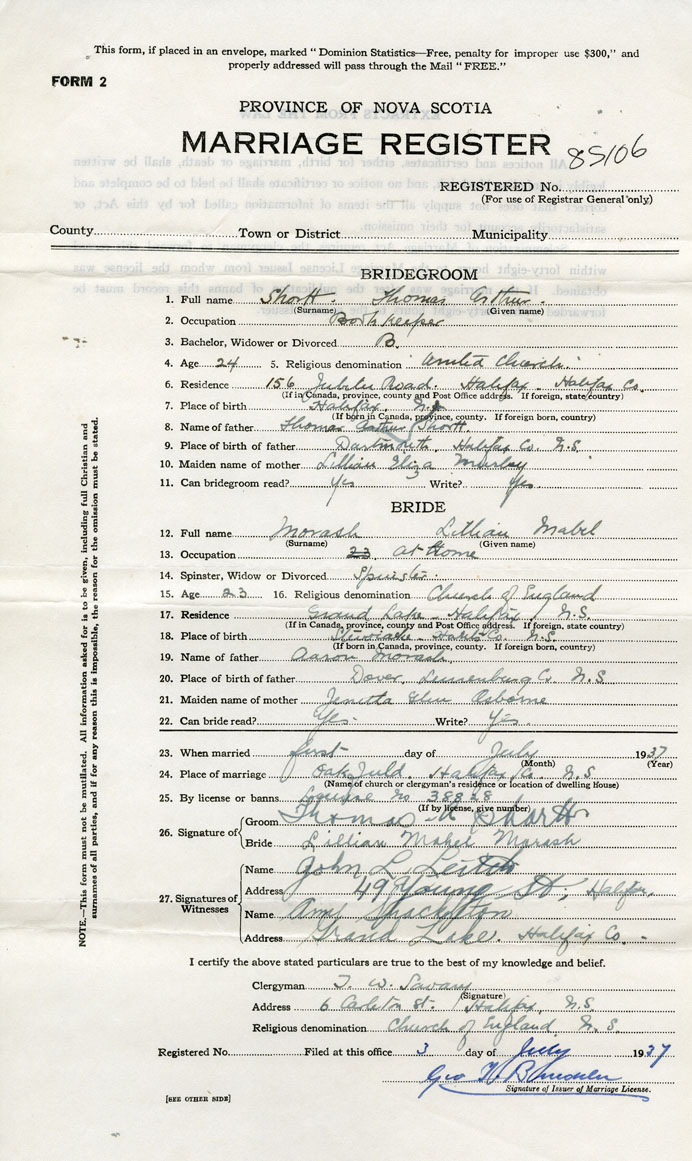 This form, if placed in an envelope, marked "Dominion Statistics—Free, penalty for improper use $300," and
properly addressed will pass through the Mail "FREE."
FORM 2
PROVINCE OF NOVA SCOTIA
MARRIAGE REGISTER
85106
REGISTERED No.
(For use of Registrar General only)
County Town or District Municipality
BRIDEGROOM
1. Full name Shortt. Thomas Arthur.
(Surname) (Given name)
2. Occupation Book keeper
3. Bachelor, Widower or Divorced B.
4. Age 24 5. Religious denomination United Church.
6. Residence 156 Jubilee Road. Halifax. Halifax Co.
(If in Canada, province, county and Post Office address. If foreign, state country)
7. Place of birth Halifax. N.S.
(If born in Canada, province, county. If foreign born, country)
8. Name of father Thomas Arthur Shortt.
9. Place of birth of father Dartmouth, Halifax Co. N.S.
10. Maiden name of mother Lillian Eliza
11. Can bridegroom read? Yes Write? Yes
BRIDE
12. Full name Morash Lillian Mabel
(Surname) (Given name)
13. Occupation 23 at Home
14. Spinster, Widow or Divorced Spinster.
15. Age 23 16. Religious denomination Church of England
17. Residence Grand Lake - Halifax N.S.
(If in Canada, province, county and Post Office address. If foreign, state country)
18. Place of birth Stewiacke Co. N.S.
(If born in Canada, province, county. If foreign born, country)
19. Name of father Aaron Morash
20. Place of birth of father Dover, Lunenburg Co. N.S.
21. Maiden name of mother Osborne
22. Can bride read? Yes. Write? Yes.
23. When married first day of July 1937
(Month) (Year)
24. Place of marriage Oakfield. Halifax Co. N.S
(Name of church or clergyman's residence or location of dwelling House)
25. By license or banns License No 38838
(If by license, give number)
26. Signature of
Groom Thomas A Shortt
Bride Lillian Mabel Morash
27. Signatures of Witnesses
Name John L Leitch
Address 49 Young St, Halifax.
Name
Address Grand Lake. Halifax Co.
I certify the above stated particulars are true to the best of my knowledge and belief.
Clergyman T. W. Savary
(Signature)
Address 6 Carleton St. Halifax, N.S.
Religious denomination Church of England N.S.
Registered No. Filed at this office 3 day of July 1937
Geo H
Signature of Issuer of Marriage License.
[SEE OTHER SIDE]
NOTE.—This form must not be mutilated. All information asked for is to be given, including full Christian and
surnames of all parties, and if for any reason this is impossible, the reason for the omission must be stated.